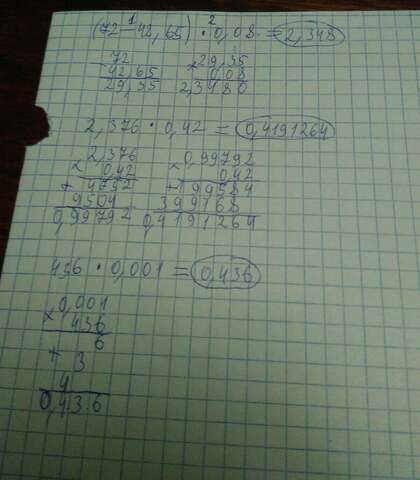 (72-42,65) · 0,08 = 2,348
1 2
72
- 42,65
29,35
29,35
× 0,08
2,3480
2,376 · 0,42 = 0,4191264
2,376
× 0,42
+ 4752
9504
0,99792
0,99792
× 0,42
+ 199584
399168
0,4191264
436 · 0,001 = 0,436
0,001
× 436
6
+ 3
4
0,436